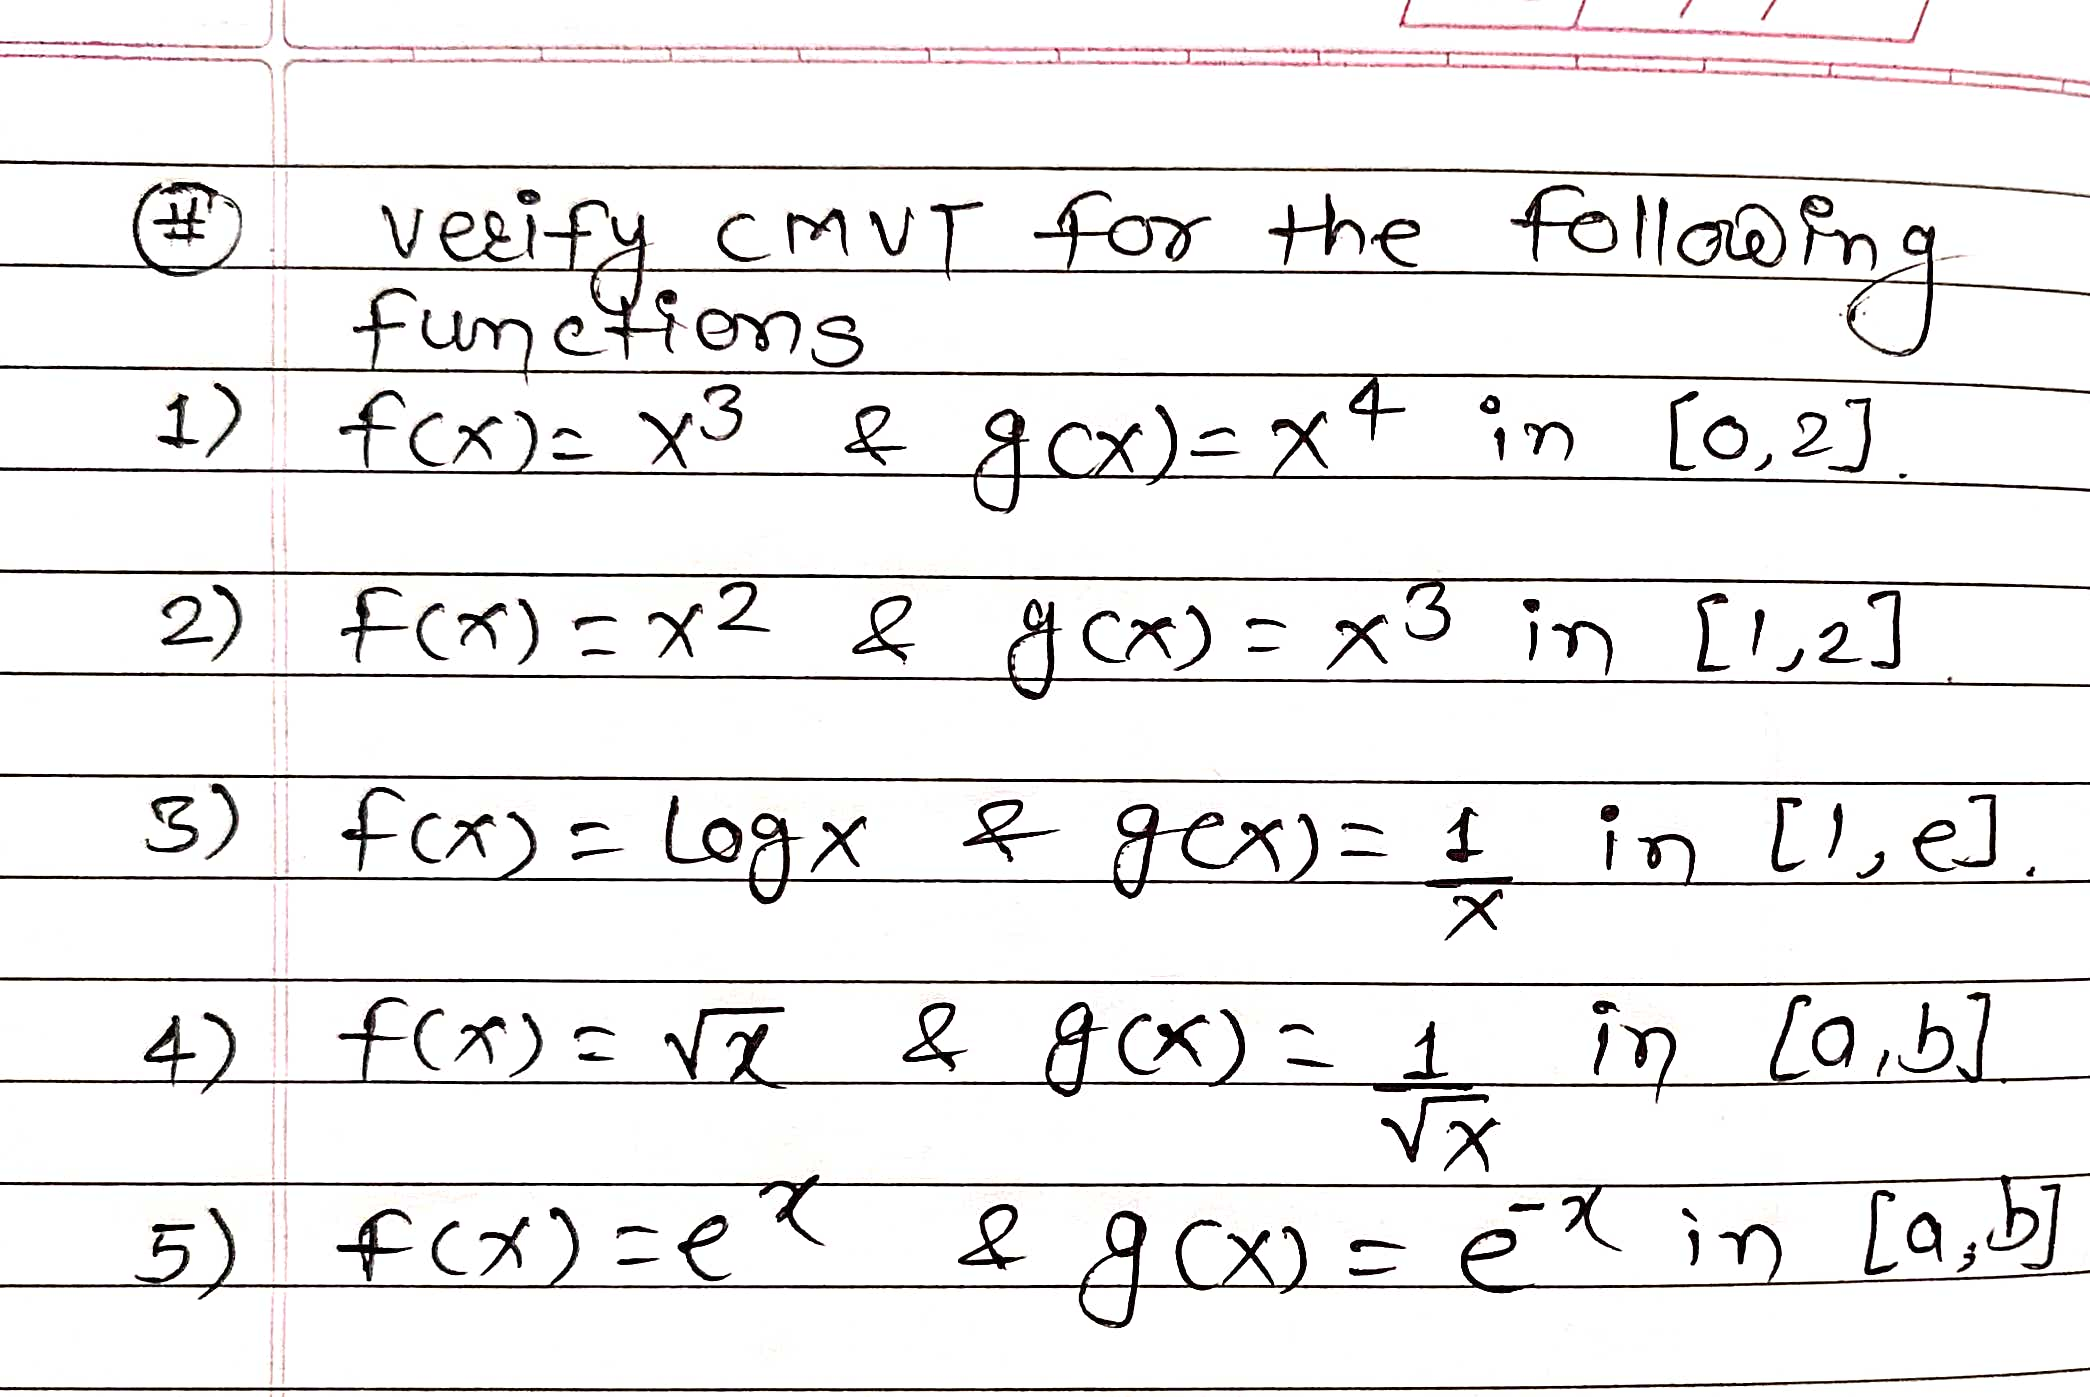 # verify CMVT for the following
functions
1) f(x) = x³ & g(x) = x⁴ in [0,2].
2) f(x) = x² & g(x) = x³ in [1,2].
3) f(x) = log x & g(x) = 1/x in [1,e].
4) f(x) = √x & g(x) = 1/√x in [a,b].
5) f(x) = eˣ & g(x) = e⁻ˣ in [a,b]